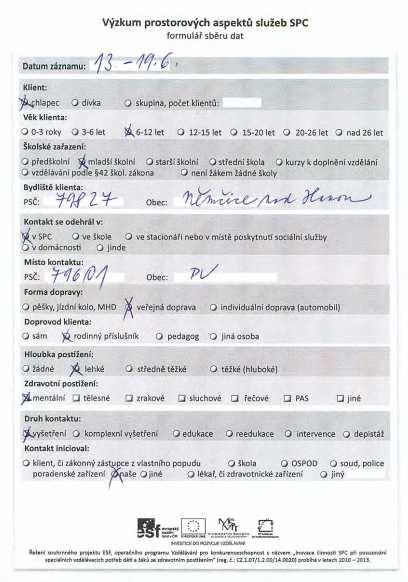 Výzkum prostorových aspektů služeb SPC
formulář sběru dat
Datum záznamu: 13. - 19.6.
Klient:
chlapec dívka skupina, počet klientů:
Věk klienta:
0-3 roky 3-6 let 6-12 let 12-15 let 15-20 let 20-26 let nad 26 let
Školské zařazení:
předškolní mladší školní starší školní střední škola kurzy k doplnění vzdělání
vzdělávání podle §42 škol. zákona není žákem žádné školy
Bydliště klienta:
PSČ: 79827 Obec: Němčice nad Hanou
Kontakt se odehrál v:
v SPC ve škole ve stacionáři nebo v místě poskytnutí sociální služby
v domácnosti jinde
Místo kontaktu:
PSČ: 79601 Obec: PV
Forma dopravy:
pěšky, jízdní kolo, MHD veřejná doprava individuální doprava (automobil)
Doprovod klienta:
sám rodinný příslušník pedagog jiná osoba
Hloubka postižení:
žádné lehké středně těžké těžké (hluboké)
Zdravotní postižení:
mentální tělesné zrakové sluchové řečové PAS jiné
Druh kontaktu:
vyšetření komplexní vyšetření edukace reedukace intervence depistáž
Kontakt inicioval:
klient, či zákonný zástupce z vlastního popudu škola OSPOD soud, police
poradenské zařízení naše jiné lékař, či zdravotnické zařízení jiný
esf evropský sociální fond v ČR EVROPSKÁ UNIE
INVESTICE DO ROZVOJE VZDĚLÁVÁNÍ
Řešení souhrnného projektu ESF, operačního programu Vzdělávání pro konkurenceschopnost s názvem „Inovace činnosti SPC při posuzování
speciálních vzdělávacích potřeb dětí a žáků se zdravotním postižením" (reg. č.: CZ.1.07/1.2.00/14.0020) probíhá v letech 2010 – 2013.